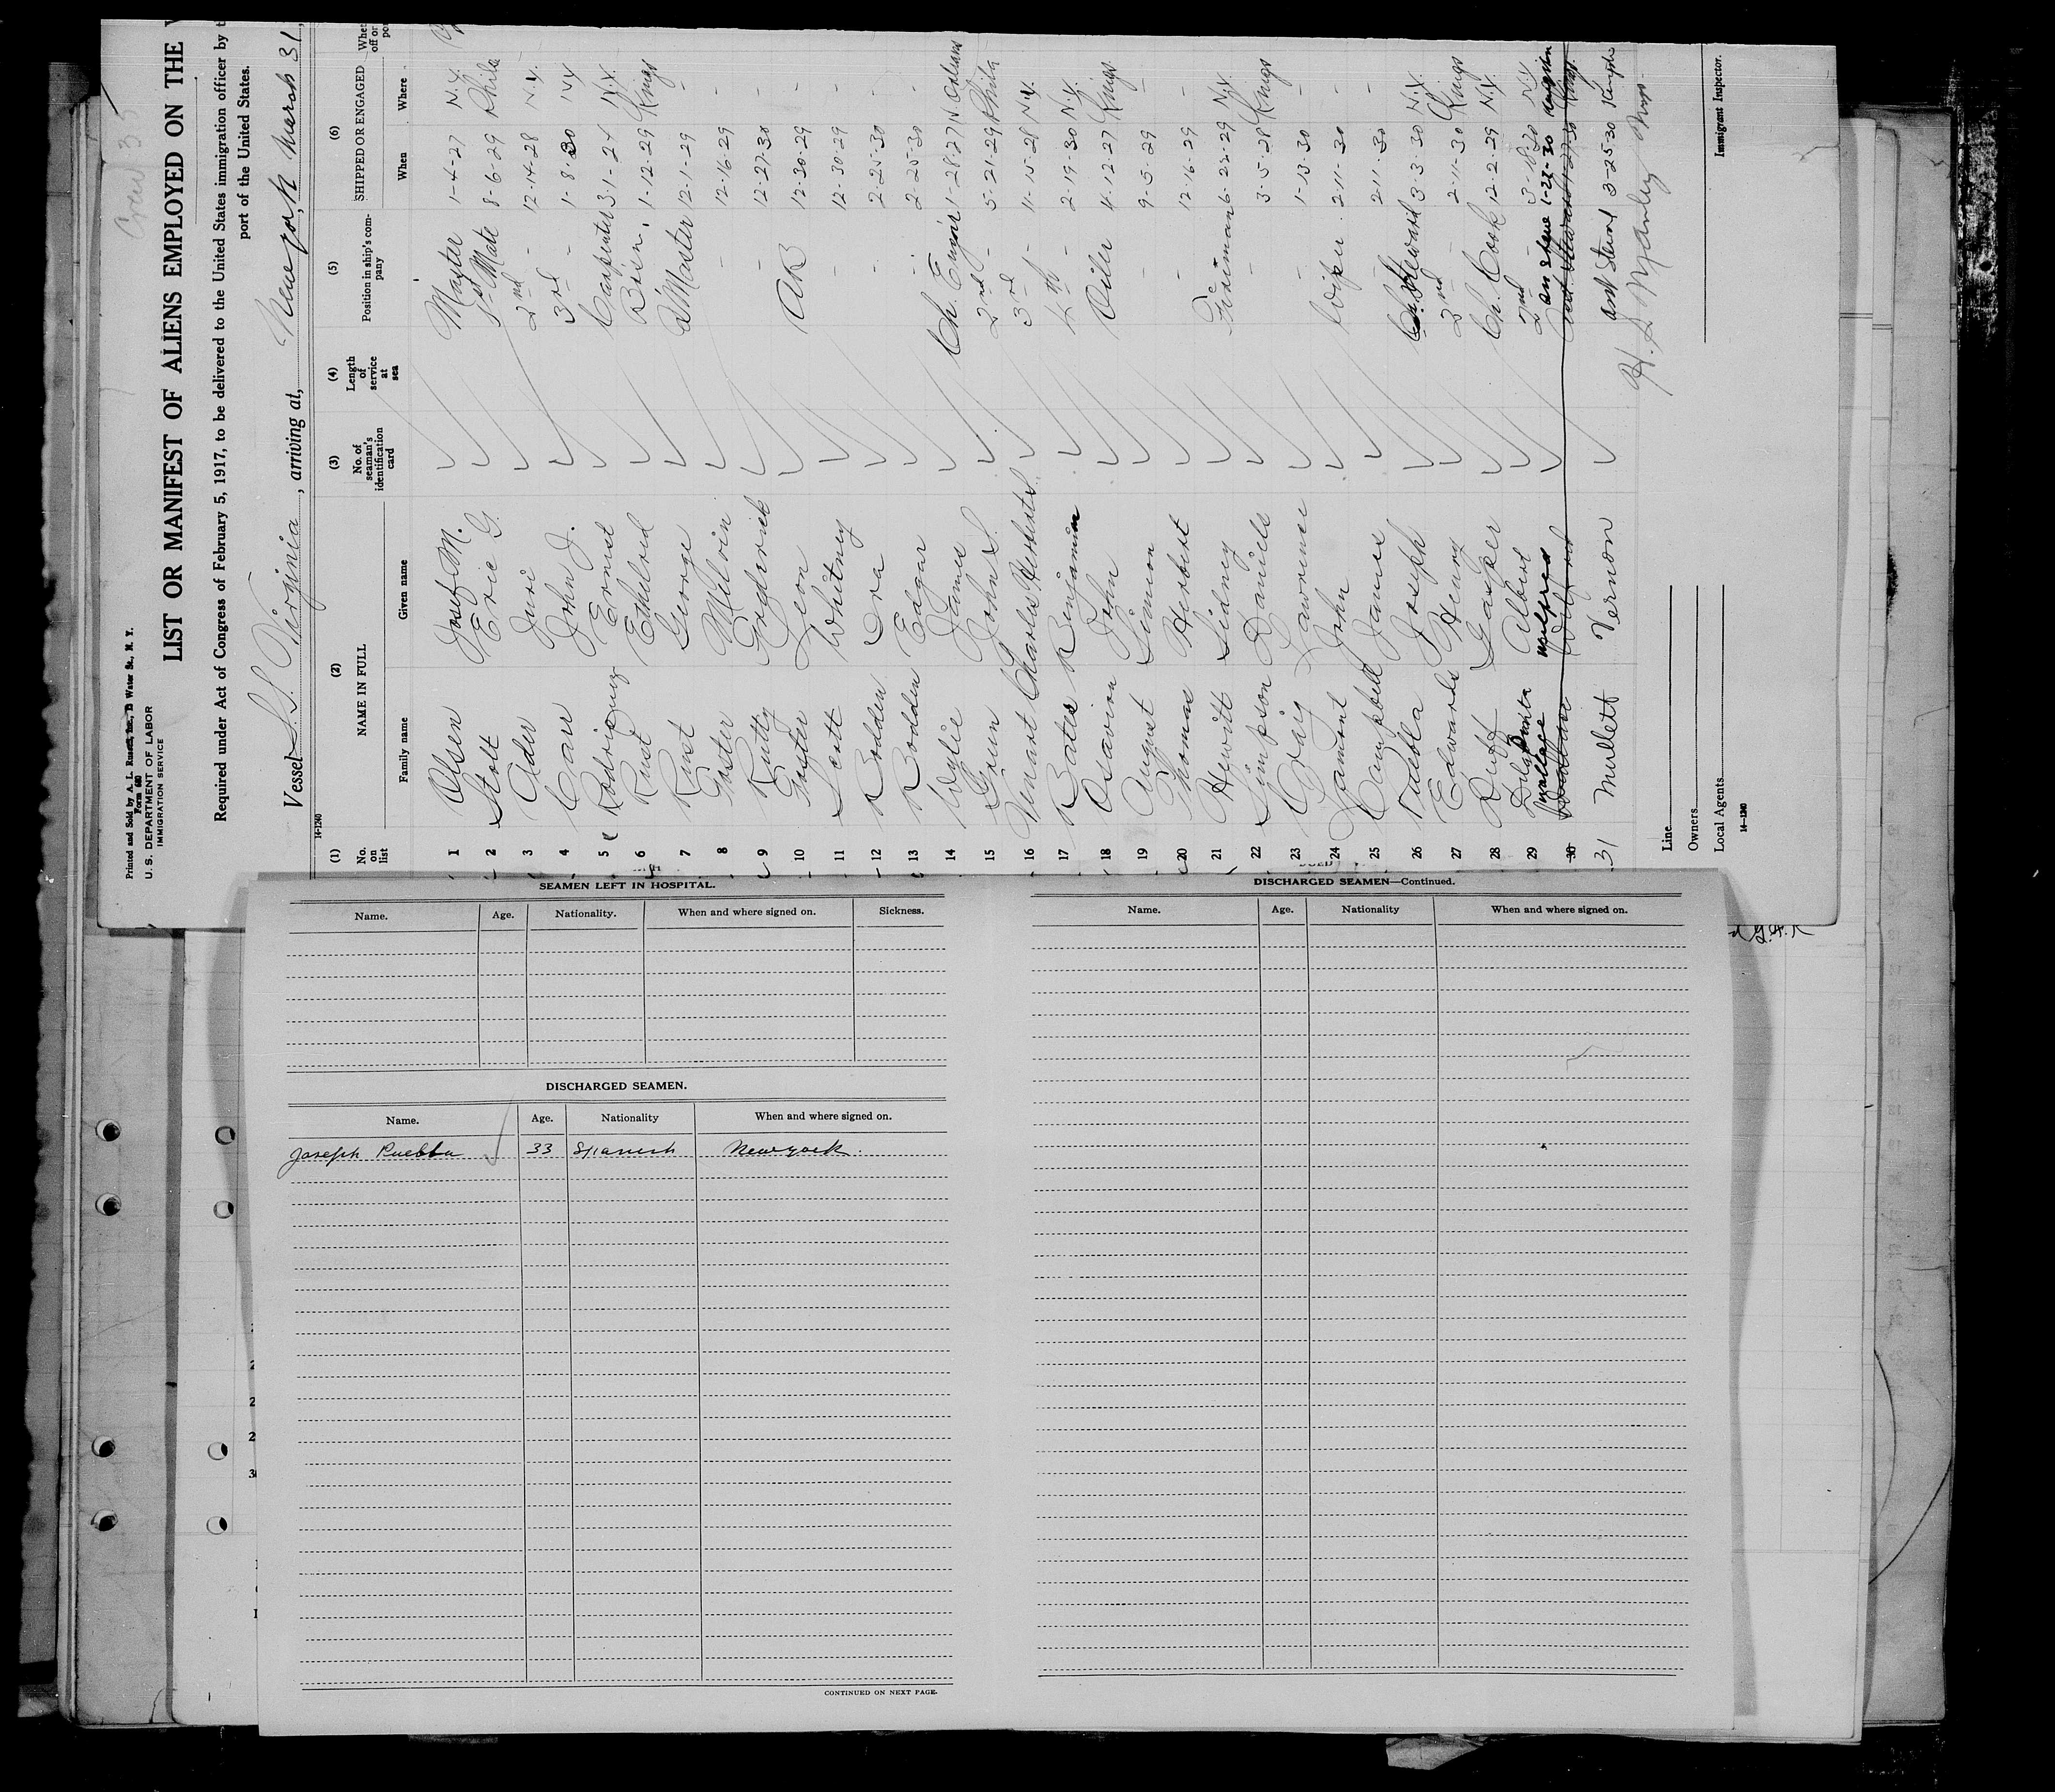 Crew 33
Printed and Sold by A. L. Russell, Inc., Water St., N. Y.
Form 680
U. S. DEPARTMENT OF LABOR
IMMIGRATION SERVICE
LIST OR MANIFEST OF ALIENS EMPLOYED ON THE
Required under Act of Congress of February 5, 1917, to be delivered to the United States immigration officer by
port of the United States.
Vessel S.S. Virginia, arriving at, New York March 31,
14-1240
(1) No. on list (2) NAME IN FULL Family name Given name (3) No. of seaman's identification card (4) Length of service at sea (5) Position in ship's company (6) SHIPPED OR ENGAGED When Where
1 Olsen Josef M. Master 1-4-27 N.Y.
2 Stolt Eric G. 1st Mate 8-6-29 Phila
3 Ader Juri 2nd - 12-14-28 N.Y.
4 Carr John J. 3rd - 1-8-30 N.Y.
5 Rodriguez Ernest Carpenter 3-1-24 N.Y.
6 Rust Ethelred 1-12-29 Kings
7 Rust George P/Master 12-1-29 -
8 Foster Melvin - 12-16-29 -
9 Rutty Frederick - 12-27-30 -
10 Foster Leon AB 12-30-29 -
11 Scott Whitney - 12-30-29 -
12 Bodden Ora - 2-25-30 -
13 Bodden Edgar - 2-25-30 -
14 Wylie James Ch. Engin'r 1-28-27 N Orleans
15 Green John S. 2nd - 5-21-29 Phila
16 Charles Herbert 3rd - 11-15-28 N.Y.
17 Bates Benjamin 4th - 2-19-30 N.Y.
18 John Oiler 4-12-27 Kings
19 August Simmon - 9-5-29 -
20 Thomas Herbert - 12-16-29 -
21 Hewitt Sidney Fireman 6-22-29 N.Y.
22 Simpson Daniell - 3-5-28 Kings
23 Craig Lawrence - 1-13-30 -
24 Lamont John Wiper 2-11-30 -
25 Campbell James - 2-11-30 -
26 Puebla Joseph Ch. Steward 3-3-30 N.Y.
27 Edwards Henry 2nd - 2-11-30 Kings
28 Ruff Gasper Ch. Cook 12-2-29 N.Y.
29 Albert 2nd - 3-18-30 N.Y.
Wallace Wilfred 1-27-30 Kingston
30
31 Mullett Vernon asst Steward 3-25-30
Immigrant Inspector.
Line
Owners
Local Agents
14-1240
SEAMEN LEFT IN HOSPITAL.
Name. Age. Nationality. When and where signed on. Sickness.
DISCHARGED SEAMEN.
Name. Age. Nationality When and where signed on.
Joseph Puebla 33 Spanish New york.
CONTINUED ON NEXT PAGE.
DISCHARGED SEAMEN—Continued.
Name. Age. Nationality When and where signed on.